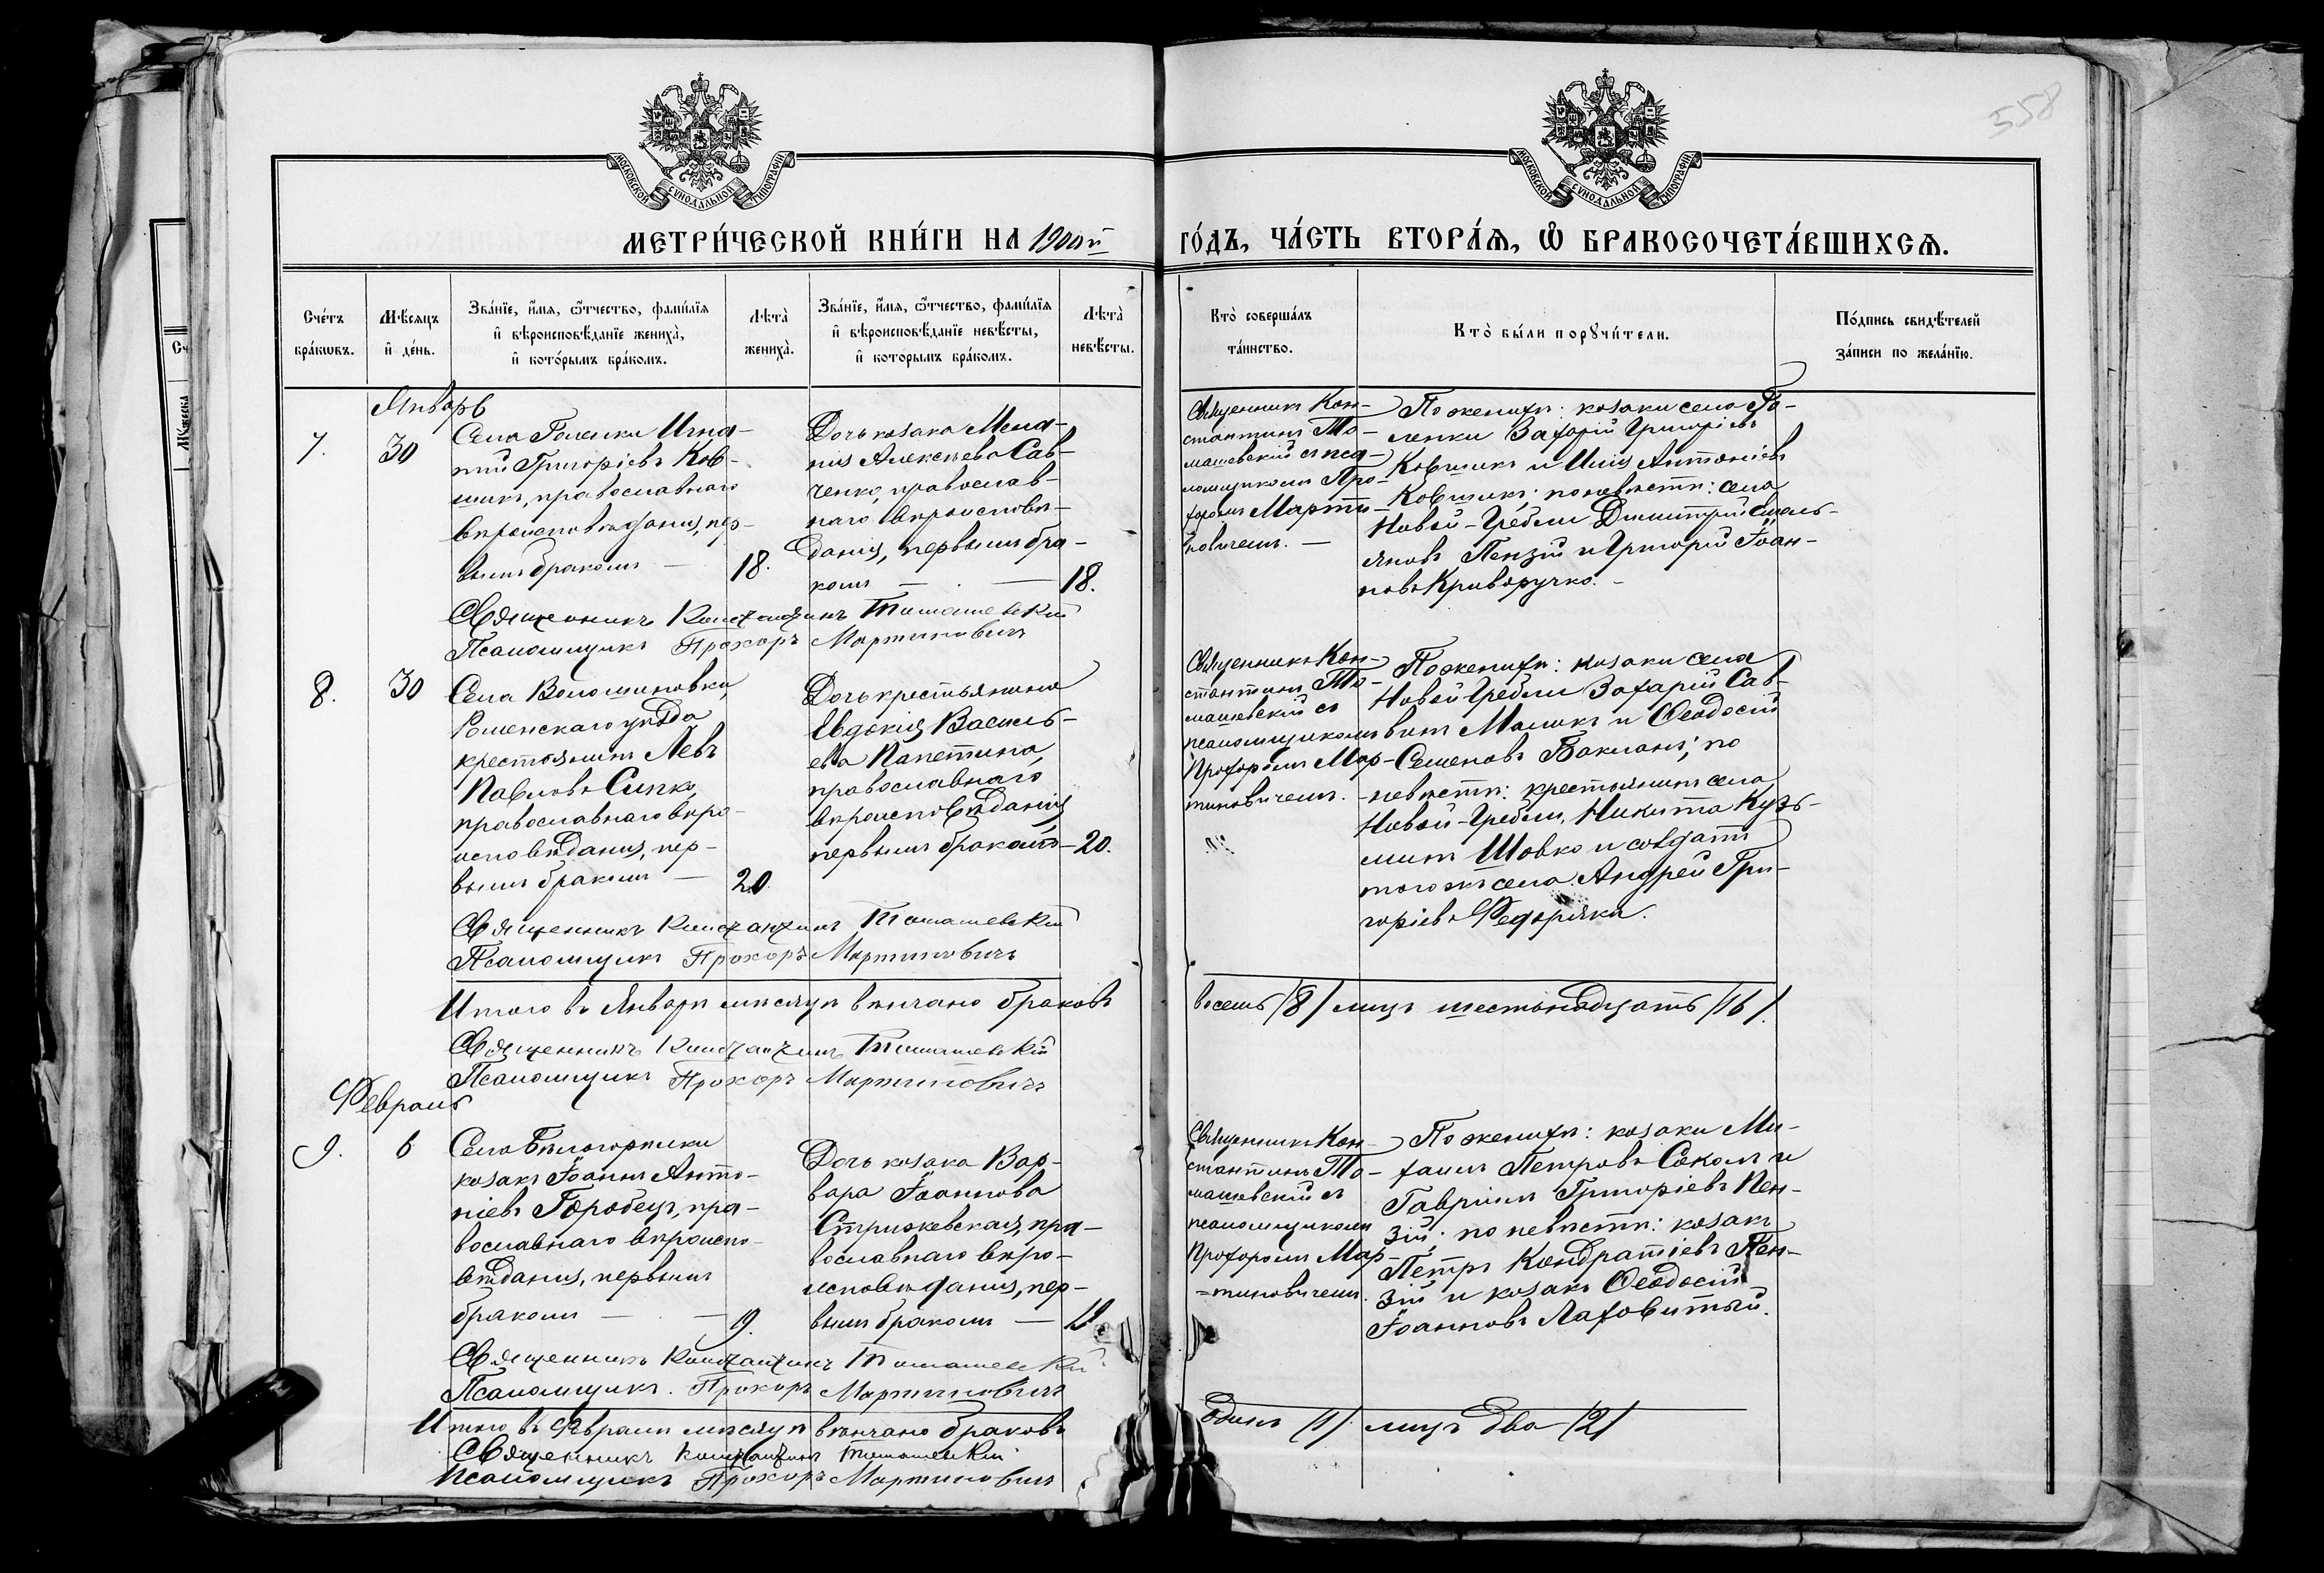 558
МОСКОВСКОЙ СУНОДАЛЬНОЙ ТИПОГРАФІИ
МОСКОВСКОЙ СУНОДАЛЬНОЙ ТИПОГРАФІИ
МЕТРИ́ЧЕСКОЙ КНИ́ГИ НА 1900й
ГО́ДЪ, ЧА́СТЬ ВТОРА́Ѧ, Ѽ БРАКОСОЧЕТА́ВШИХСѦ.
Сче́тъ бра́кѡвъ.
Мѣ́сяцъ и҆ де́нь.
Зва́нїе, и҆́мя, ѻ҆́тчество, фами́лїя
и҆ вѣроисповѣ́данїе жениха̀,
и҆ кото́рымъ бра́комъ.
Лѣта̀ жениха̀.
Зва́нїе, и҆́мя, ѻ҆́тчество, фами́лїя
и҆ вѣроисповѣ́данїе невѣ́сты,
и҆ которымъ бра́комъ.
Лѣта̀ невѣ́сты.
Кто̀ соверша́лъ
та́инство.
Кто̀ бы́ли порꙋчи́тели.
По́дпись свидѣ́телей
за́писи по жела́нїю.
Январь
7.
30
Села Голенки Игна-
тій Григоріевъ Ков-
шикъ, православнаго
вѣроисповѣданія, пер-
вымъ бракомъ —
18.
Дочь козака Мела-
нія Алексѣева Сав-
ченко, православ-
наго вѣроисповѣ-
данія, первымъ бра-
комъ —
18.
Священникъ Кон-
стантинъ То-
машевскій съ пса-
ломщикомъ Про-
хоромъ Марти-
новичемъ. —
По женихѣ: козаки села Го-
ленки Захарій Григоріевъ
Ковшикъ и Илія Антоніевъ
Ковшикъ; по невѣстѣ: села
Новой-Гребли Димитрій Емель-
яновъ Пензій и Григорій Іоан-
новъ Криворучко. -
Священникъ Константинъ Томашевскій
Псаломщикъ Прохоръ Мартиновичъ
8.
30
Села Волошиновки,
Роменскаго уѣзда
крестьянинъ Левъ
Павловъ Сипко,
православнаго вѣро-
исповѣданія, пер-
вымъ бракомъ —
20.
Дочь крестьянина
Евдокія Василь-
ева
православнаго
вѣроисповѣданія
первымъ бракомъ —
20.
Священникъ Кон-
стантинъ То-
машевскій съ
псаломщикомъ
Прохоромъ Мар-
тиновичемъ.
По женихѣ: козаки села
Новой-Гребли Захарій Сав-
винъ Маликъ и Ѳеодосій
Семеновъ Бакланъ; по
невѣстѣ: крестьянинъ села
Новой-Гребли, Никита Кузь-
минъ Шовко и солдатъ
того жъ села Андрей Гри-
горіевъ Федоряка.
Священникъ Константинъ Томашевскій
Псаломщикъ Прохоръ Мартиновичъ
Итого въ Январѣ мѣсяцѣ вѣнчано браковъ
восемь /8/ лицъ шестьнадцать /16/.
Священникъ Константинъ Томашевскій
Псаломщикъ Прохоръ Мартиновичъ
Февраль
9.
6
Села Бѣлогорѣлки
козакъ Іоаннъ Анто-
ніевъ Городецъ, пра-
вославнаго вѣроиспо-
вѣданія, первымъ
бракомъ —
19.
Дочь козака Вар-
вара Іоаннова
Стрижевская, пра-
вославнаго вѣро-
исповѣданія, пер-
вымъ бракомъ —
Священникъ Кон-
стантинъ То-
машевскій съ
псаломщикомъ
Прохоромъ Мар-
=тиновичемъ.
По женихѣ: козаки Ми-
хаилъ Петровъ Соколъ и
Гавріилъ Григоріевъ Пен-
зій; по невѣстѣ: козакъ
Петръ Кондратіевъ Пен-
зій и козакъ Ѳеодосій
Іоанновъ Лаховитый.
Священникъ Константинъ Томашевскій
Псаломщикъ. Прохоръ Мартиновичъ
Итого въ Февралѣ мѣсяцѣ вѣнчано браковъ
одинъ /1/. лицъ два /2/
Священникъ Константинъ Томашевскій
Псаломщикъ Прохоръ Мартиновичъ